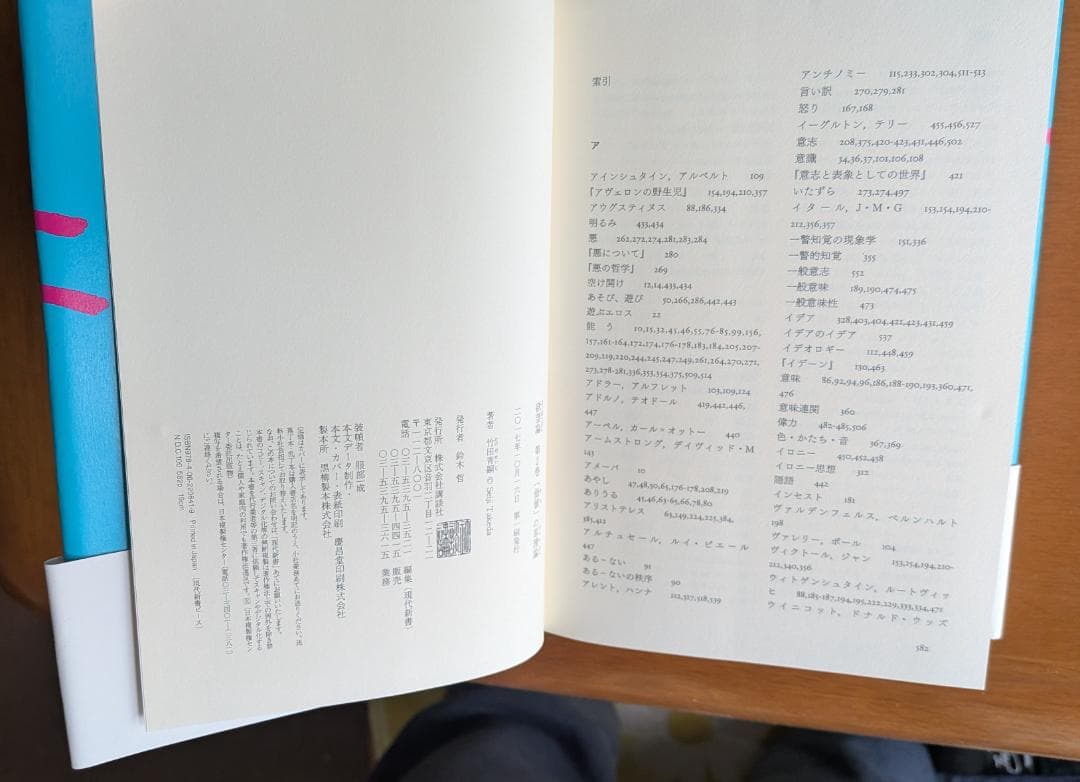 索引
ア
アインシュタイン，アルベルト 109
『アヴェロンの野生児』 154,194,210,357
アウグスティヌス 88,186,334
明るみ 433,434
悪 262,272,274,281,283,284
『悪について』 280
『悪の哲学』 269
空け開け 12,14,433,434
あそび、遊び 50,266,286,442,443
遊ぶエロス 22
能う 10,15,32,45,46,55,76-85,99,156,
157,161-164,172,174,176-178,183,184,205,207-
209,219,220,244,245,247,249,261,264,270,271,
273,278-281,336,353,354,375,509,514
アドラー，アルフレット 103,109,124
アドルノ，テオドール 419,442,446,
447
アーペル，カール・オットー 440
アームストロング，デイヴィッド・M
143
アメーバ 10
あやし 47,48,50,65,176-178,208,219
ありうる 45,46,63-65,66,78,80
アリストテレス 63,149,224,225,384,
385,412
アルチュセール，ルイ・ピエール
447
ある-ない 91
ある-ないの秩序 90
アレント，ハンナ 112,317,318,539
アンチノミー 115,233,302,304,511-513
言い訳 270,279,281
怒り 167,168
イーグルトン，テリー 455,456,527
意志 208,375,420-423,431,446,502
意識 34,36,37,101,106,108
『意志と表象としての世界』 421
いたずら 273,274,497
イタール，J・M・G 153,154,194,210-
212,356,357
一瞥知覚の現象学 151,336
一瞥的知覚 355
一般意志 552
一般意味 189,190,474,475
一般意味性 473
イデア 328,403,404,421,423,431,459
イデアのイデア 537
イデオロギー 112,448,459
『イデーン』 130,463
意味 86,92,94,96,186,188-190,193,360,471,
476
意味連関 360
偉力 482-485,506
色・かたち・音 367,369
イロニー 450,452,458
イロニー思想 312
隠語 442
インセスト 181
ヴァルデンフェルス，ベルンハルト
198
ヴァレリー，ポール 104
ヴィクトール，ジャン 153,154,194,210-
212,340,356
ウィトゲンシュタイン，ルートヴィッ
ヒ 88,185-187,194,195,222,229,333,334,471
ウィニコット，ドナルド・ウッズ
582
二〇一七年一〇月一一日 第一刷発行
著者 竹田青嗣 © Seiji Takeda
発行者 鈴木 哲
発行所 株式会社講談社
東京都文京区音羽二丁目一二-二一
〒一一二-八〇〇一
電話 〇三-五三九五-三五二一 編集（現代新書）
〇三-五三九五-四四一五 販売
〇三-五三九五-三六一五 業務
装幀者 服部一成
本文データ制作
本文・カバー・表紙印刷 慶昌堂印刷株式会社
製本所 黒柳製本株式会社